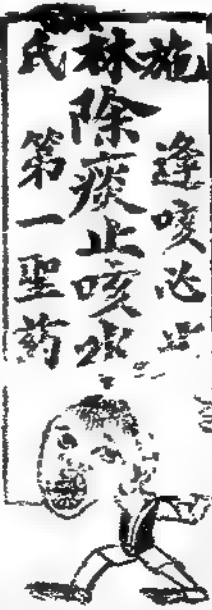 施林氏
逢咳必止
除痰止咳水
第一聖药